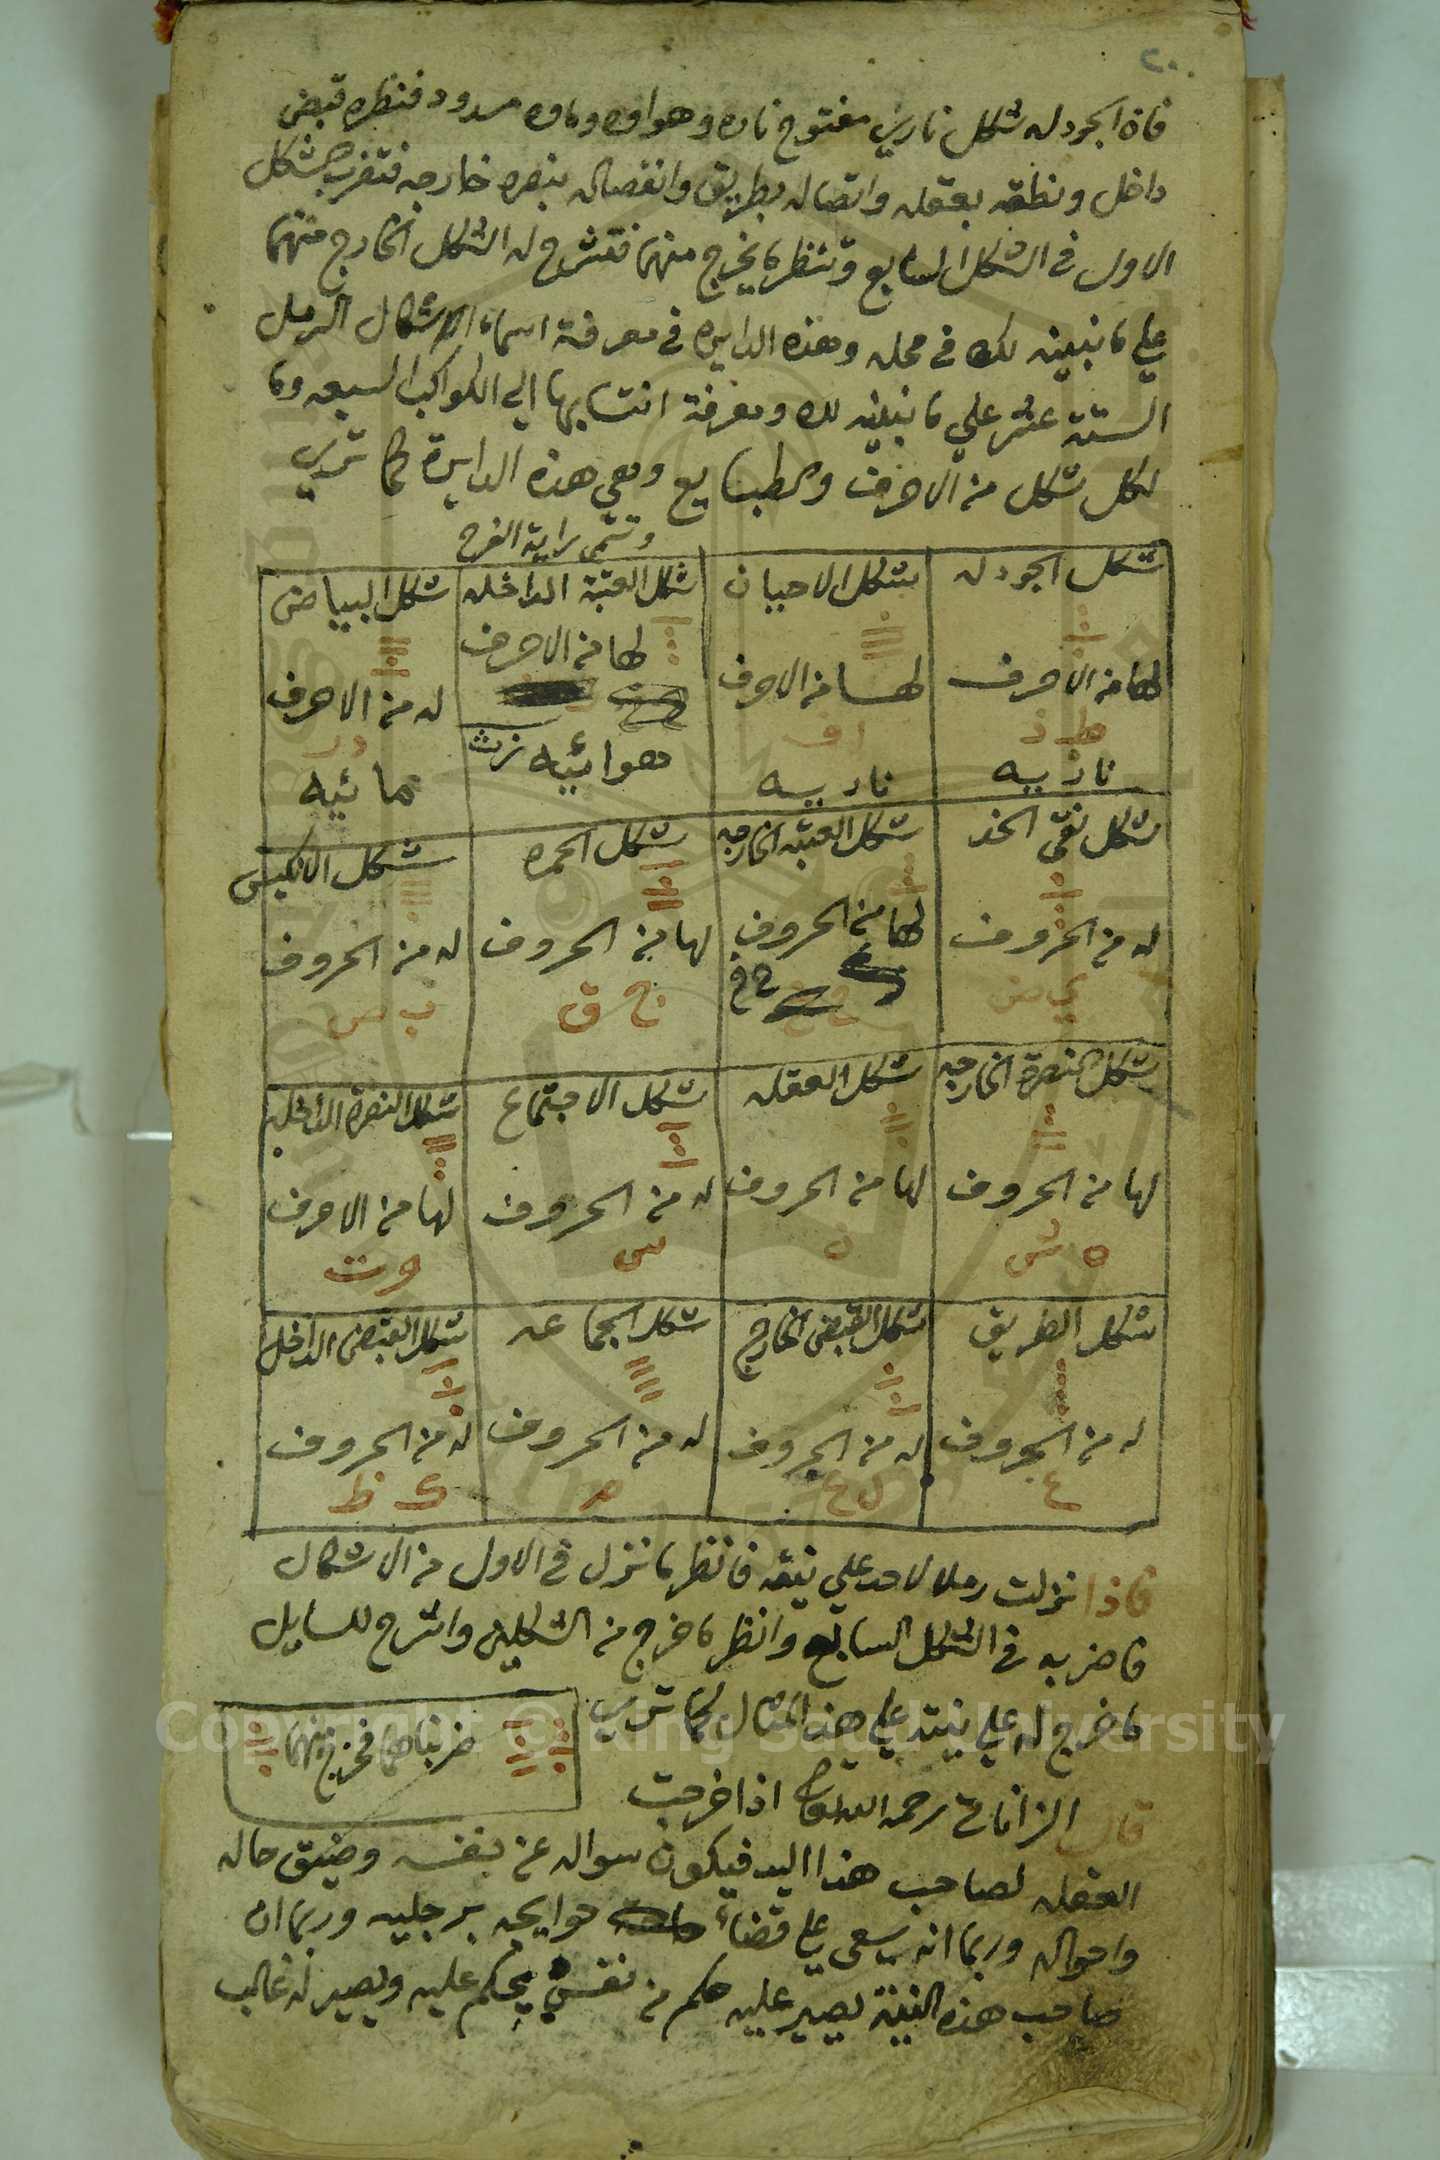 فان الجودله شكل ناري مفتوح ناره وهواوه وماوه مسدود فنظره قبض
داخل ونطقه بعقله واتصاله بطريق وانفصاله بنصره خارجه فتضرب شكل
الاول في الشكل السابع وتنظر ما يخرج منهما فتشرح له الشكل الخارج منهما
علي ما نبينه لك في محله وهذه الدايره في معرفة اسماء الاشكال الرمل
الستة عشر علي ما نبينه لك ومعرفة انتسابها الي الكواكب السبعه وما
لكل شكل من الاحرف والطبايع وهي هذه الدايرة كما تري
وتسمى براية الفرح
شكل الجودله
لها من الاحرف
ط ذ
نارييه
شكل الاحيان
لها من الاحرف
ا ف
نارييه
شكل العتبة الداخله
لها من الاحرف
هوائيه
ز ث
شكل البياض
له من الاحرف
د ر
مائيه
شكل نقي الخد
له من الحروف
ي ض
شكل العتبه الخارجه
لها من الحروف
ح خ
شكل الحمره
لها من الحروف
ج ق
شكل الانكيس
له من الحروف
ب ص
شكل النصرة الخارجه
لها من الحروف
ه ش
شكل العقله
لها من الحروف
ن
شكل الاجتماع
له من الحروف
س
شكل النصرة الداخله
لها من الاحرف
و ت
شكل الطريق
له من الحروف
ع
شكل القبض الخارج
له من الحروف
ل غ
شكل الجماعه
له من الحروف
م
شكل القبض الداخل
له من الحروف
ك ظ
فاذا نزلت رملا لاحد علي نيته فانظر ما نزل في الاول من الاشكال
فاضربه في الشكل السابع وانظر ما خرج من الشكلين واشرح للسايل
ما خرج له علي نيته علي هذا المثال كما تري
ضربناهما فخرج منهما
قال الزاناتي رحمه الله تعالى اذا خرجت
العقله لصاحب هذا اليد فيكون سواله عن نفسه وضيق حاله
واحواله وربما انه يسعى علي قضاء حوايجه برجليه وربما ان
صاحب هذه النية يصير عليه حكم من نفسه يحكم عليه ويصير له غالب
Copyright © King Saud University